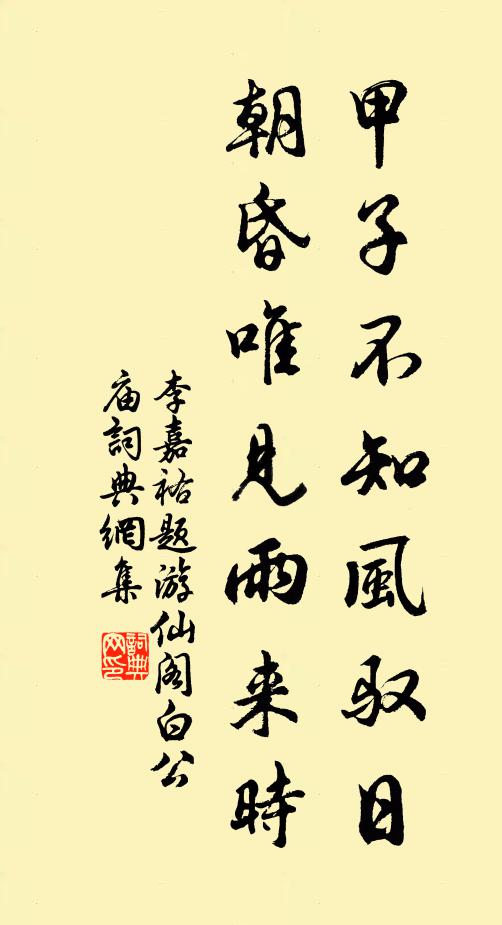 甲子不知風驭日
朝昏唯見雨来時
李嘉祐題游仙阁白公
庙詞典網集
詞典
网印